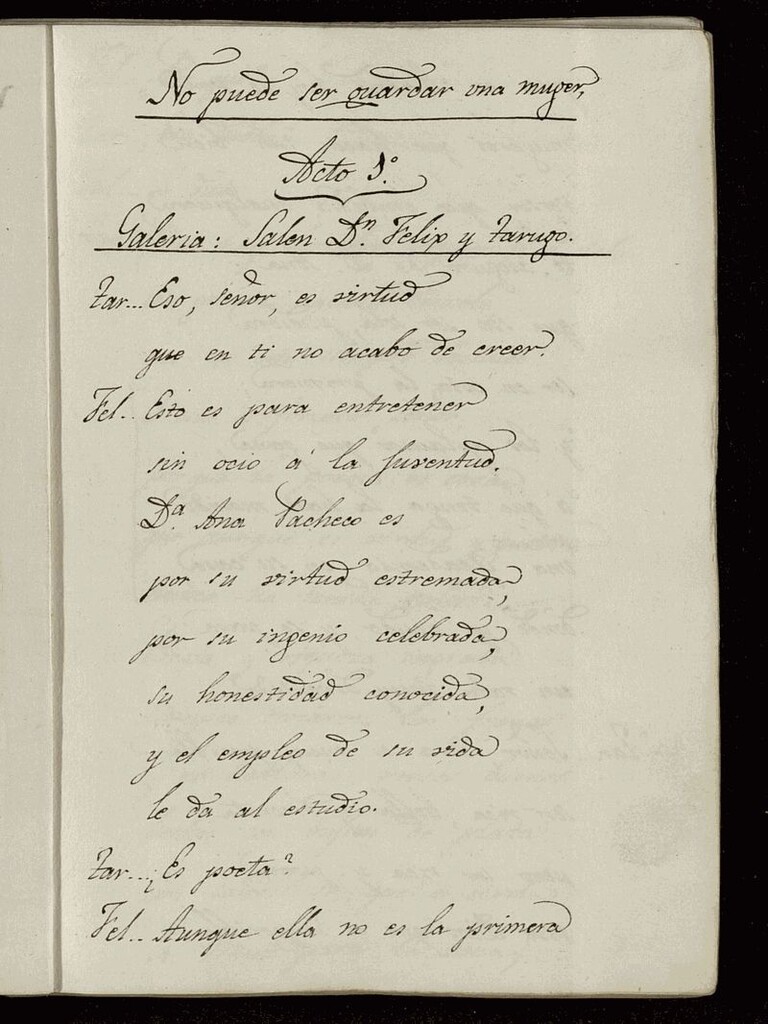 No puede ser guardar una muger,
Acto 1.º
Galeria: Salen D.ⁿ Felix y Tarugo.
Tar... Eso, señor, es virtud
que en ti no acabo de creer.
Fel.. Esto es para entretener
sin ocio á la Juventud.
D.ª Ana Pacheco es
por su virtud estremada,
por su ingenio celebrada,
su honestidad conocida,
y el empleo de su vida
le da al estudio.
Tar... ¿Es poeta?
Fel.. Aunque ella no es la primera